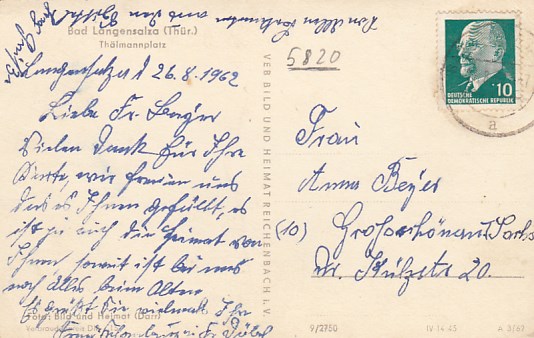 Bad Langensalza (Thür.)
Thälmannplatz
Langensalza d 26.8.1962
Liebe Fr. Beyer
Vielen Dank für Ihre
Karte, wir freuen uns
das es Ihnen gefällt, es
ist ja auch die Heimat von
Ihnen soweit ist bei uns
noch alles beim Alten
Es grüßt Sie vielmals Ihr
Foto: Bild und Heimat (Darr)
VEB BILD UND HEIMAT REICHENBACH I. V.
5820
DEUTSCHE
DEMOKRATISCHE REPUBLIK
10
a
Frau
Anna Beyer
(10) Großschönau Sachs
Dr. Külzstr 20.
9/2750
IV-14-45
A 3/62